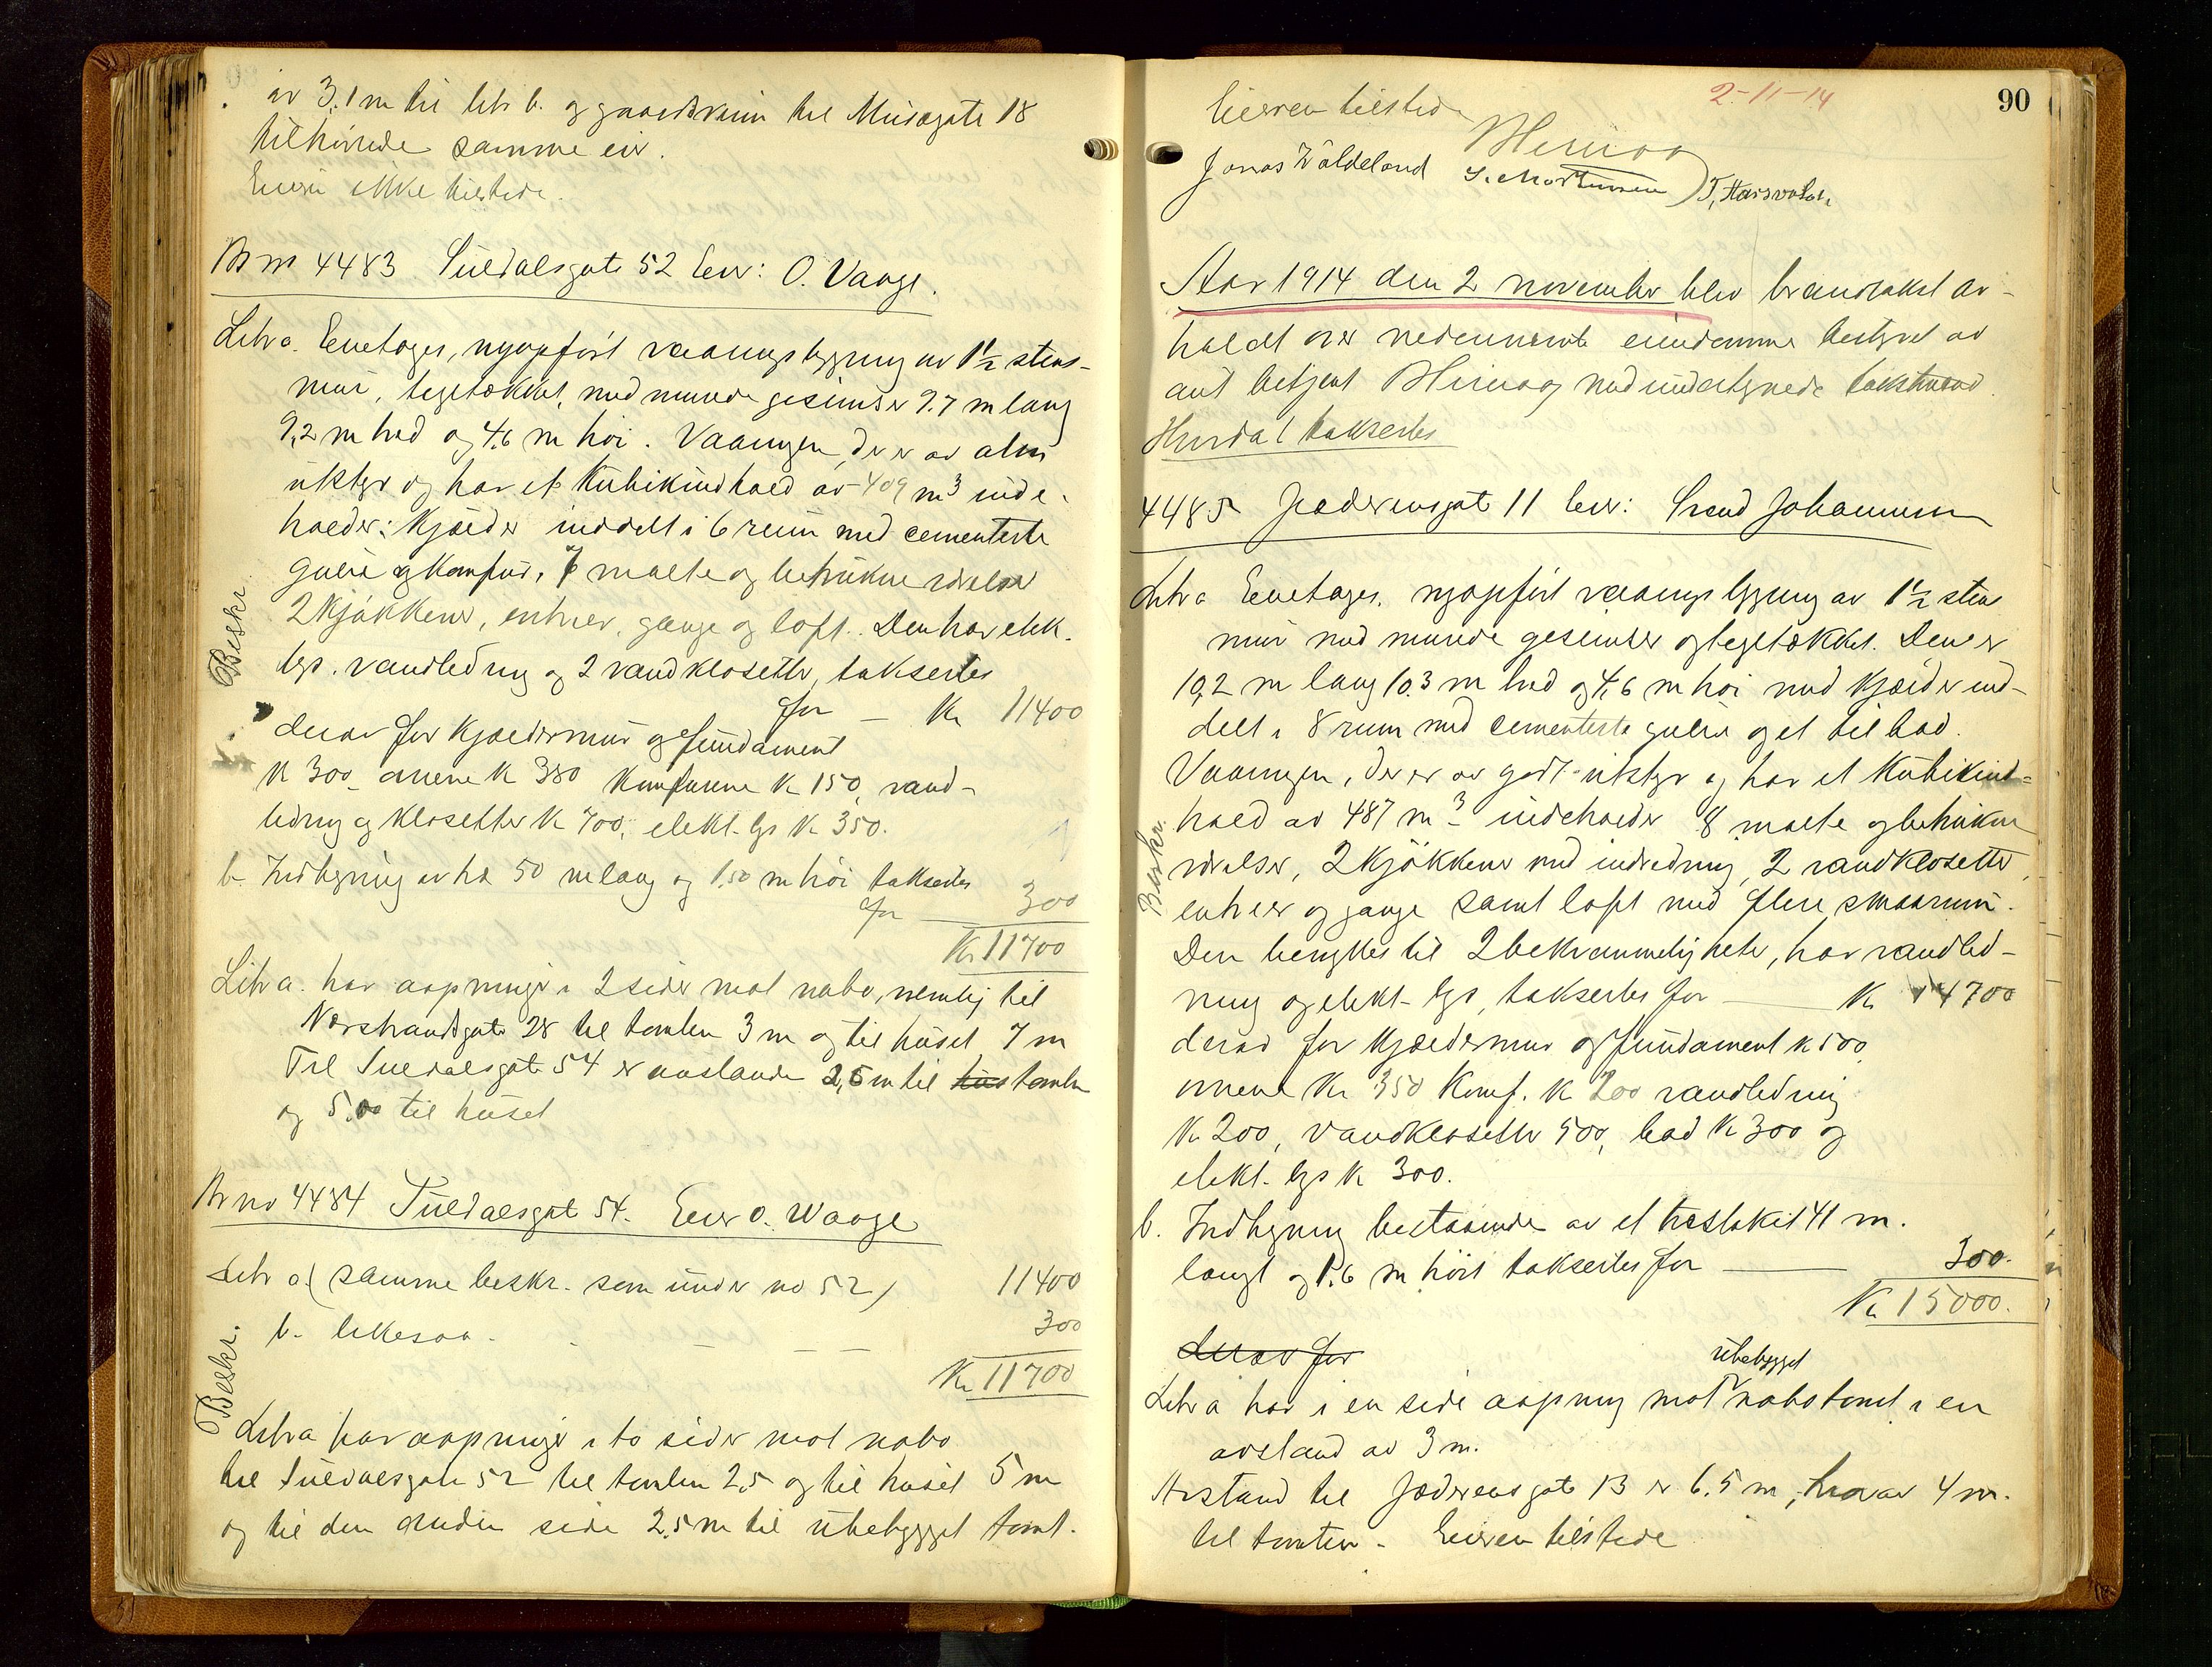 av 3.1 m til litr b. og gaardsrum til Musegate 18
tilhørende samme eier.
Eieren ikke tilstede.
Br no 4483 Suldalsgate 52 Eier: O. Vaage.
Litr a. Enetages, nyopført vaaningsbygning av 1 1/2 stens-
mur, tegltækket, med murede gesimser 9.7 m lang
9,2 m bred og 4,6 m høi. Vaaningen, der er av alm
utstyr og har et kubikindhold av 409 m3 inde-
holder: Kjælder inddelt i 6 rum med cementerte
gulve og komfur, 7 malte og betrukne værelser
2 kjøkkener, entreer, gange og loft. Den har elek.
lys. vandledning og 2 vandklosetter, takseres
for — Kr 11400
derav for kjældermur og fundament
K 300 ovnene K 380 Komfurene K 150, vand-
ledning og klosetter K 700, elekt. lys K 350.
b. Indhegning av træ 50 m lang og 1,50 m høi takseres
for 300
Kr 11700
Beskr.
Litr a. har aapninger i 2 sider mot nabo, nemlig til
Nærstrandsgate 28 til tomten 3 m og til huset 7 m
Til Suldalsgate 54 er avstanden 2,5 m til hus tomten
og 5.00 til huset
Br no 4484 Suldalsgate 54. Eier O. Waage
Litr a (samme beskr. som under no 52) 11400
b. likesaa - — — 300
Kr 11700
Beskr.
Litr a har aapninger i to sider mot nabo
til Suldalsgate 52 til tomten 2,5 og til huset 5 m
og til den anden side 2.5 m til ubebygget tomt.
2-11-14
90
Eieren tilstede
Jonas Woldeland S. Mortensen
Aar 1914 den 2 november blev brandtakst av-
holdt over nedennævnte eiendomme bestyret av
amt betjent med undertegnede takstmænd.
Hvorda takseres
4485 Jæderensgate 11 Eier: Svend Johannessen
Litr a Enetages, nyopført vaaningsbygning av 1 1/2 sten
mur med murede gesimser og tegltækket. Den er
10,2 m lang 10.3 m bred og 4,6 m høi med kjælder ind-
delt i 8 rum med cementerte gulve og et til bad.
Vaaningen, der er av godt utstyr og har et kubikind-
hold av 487 m3 indeholder 8 malte og betrukne
værelser, 2 kjøkkener med indredning, 2 vandklosetter,
entreer og gange samt loft med flere smaarum.
Den benyttes til 2 bekvemmeligheter, har vandled-
ning og elekt. lys, takseres for — Kr 14700
derav for kjældermur og fundament K 500
ovnene Kr 350 Komf. K 200 vandledning
K 200, vandklosetter 500, bad K 300 og
elekt. lys K 300.
Beskr.
b. Indhegning bestaaende av et træstakit 41 m.
langt og 1.6 m høit takseres for — 300.
Kr 15000.
derav for
Litr a har i en side aapning mot ubebygget nabotomt i en
avstand av 3 m.
Avstand til Jæderensgate 13 er 6.5 m, hvorav 4 m.
til tomten - Eieren tilstede